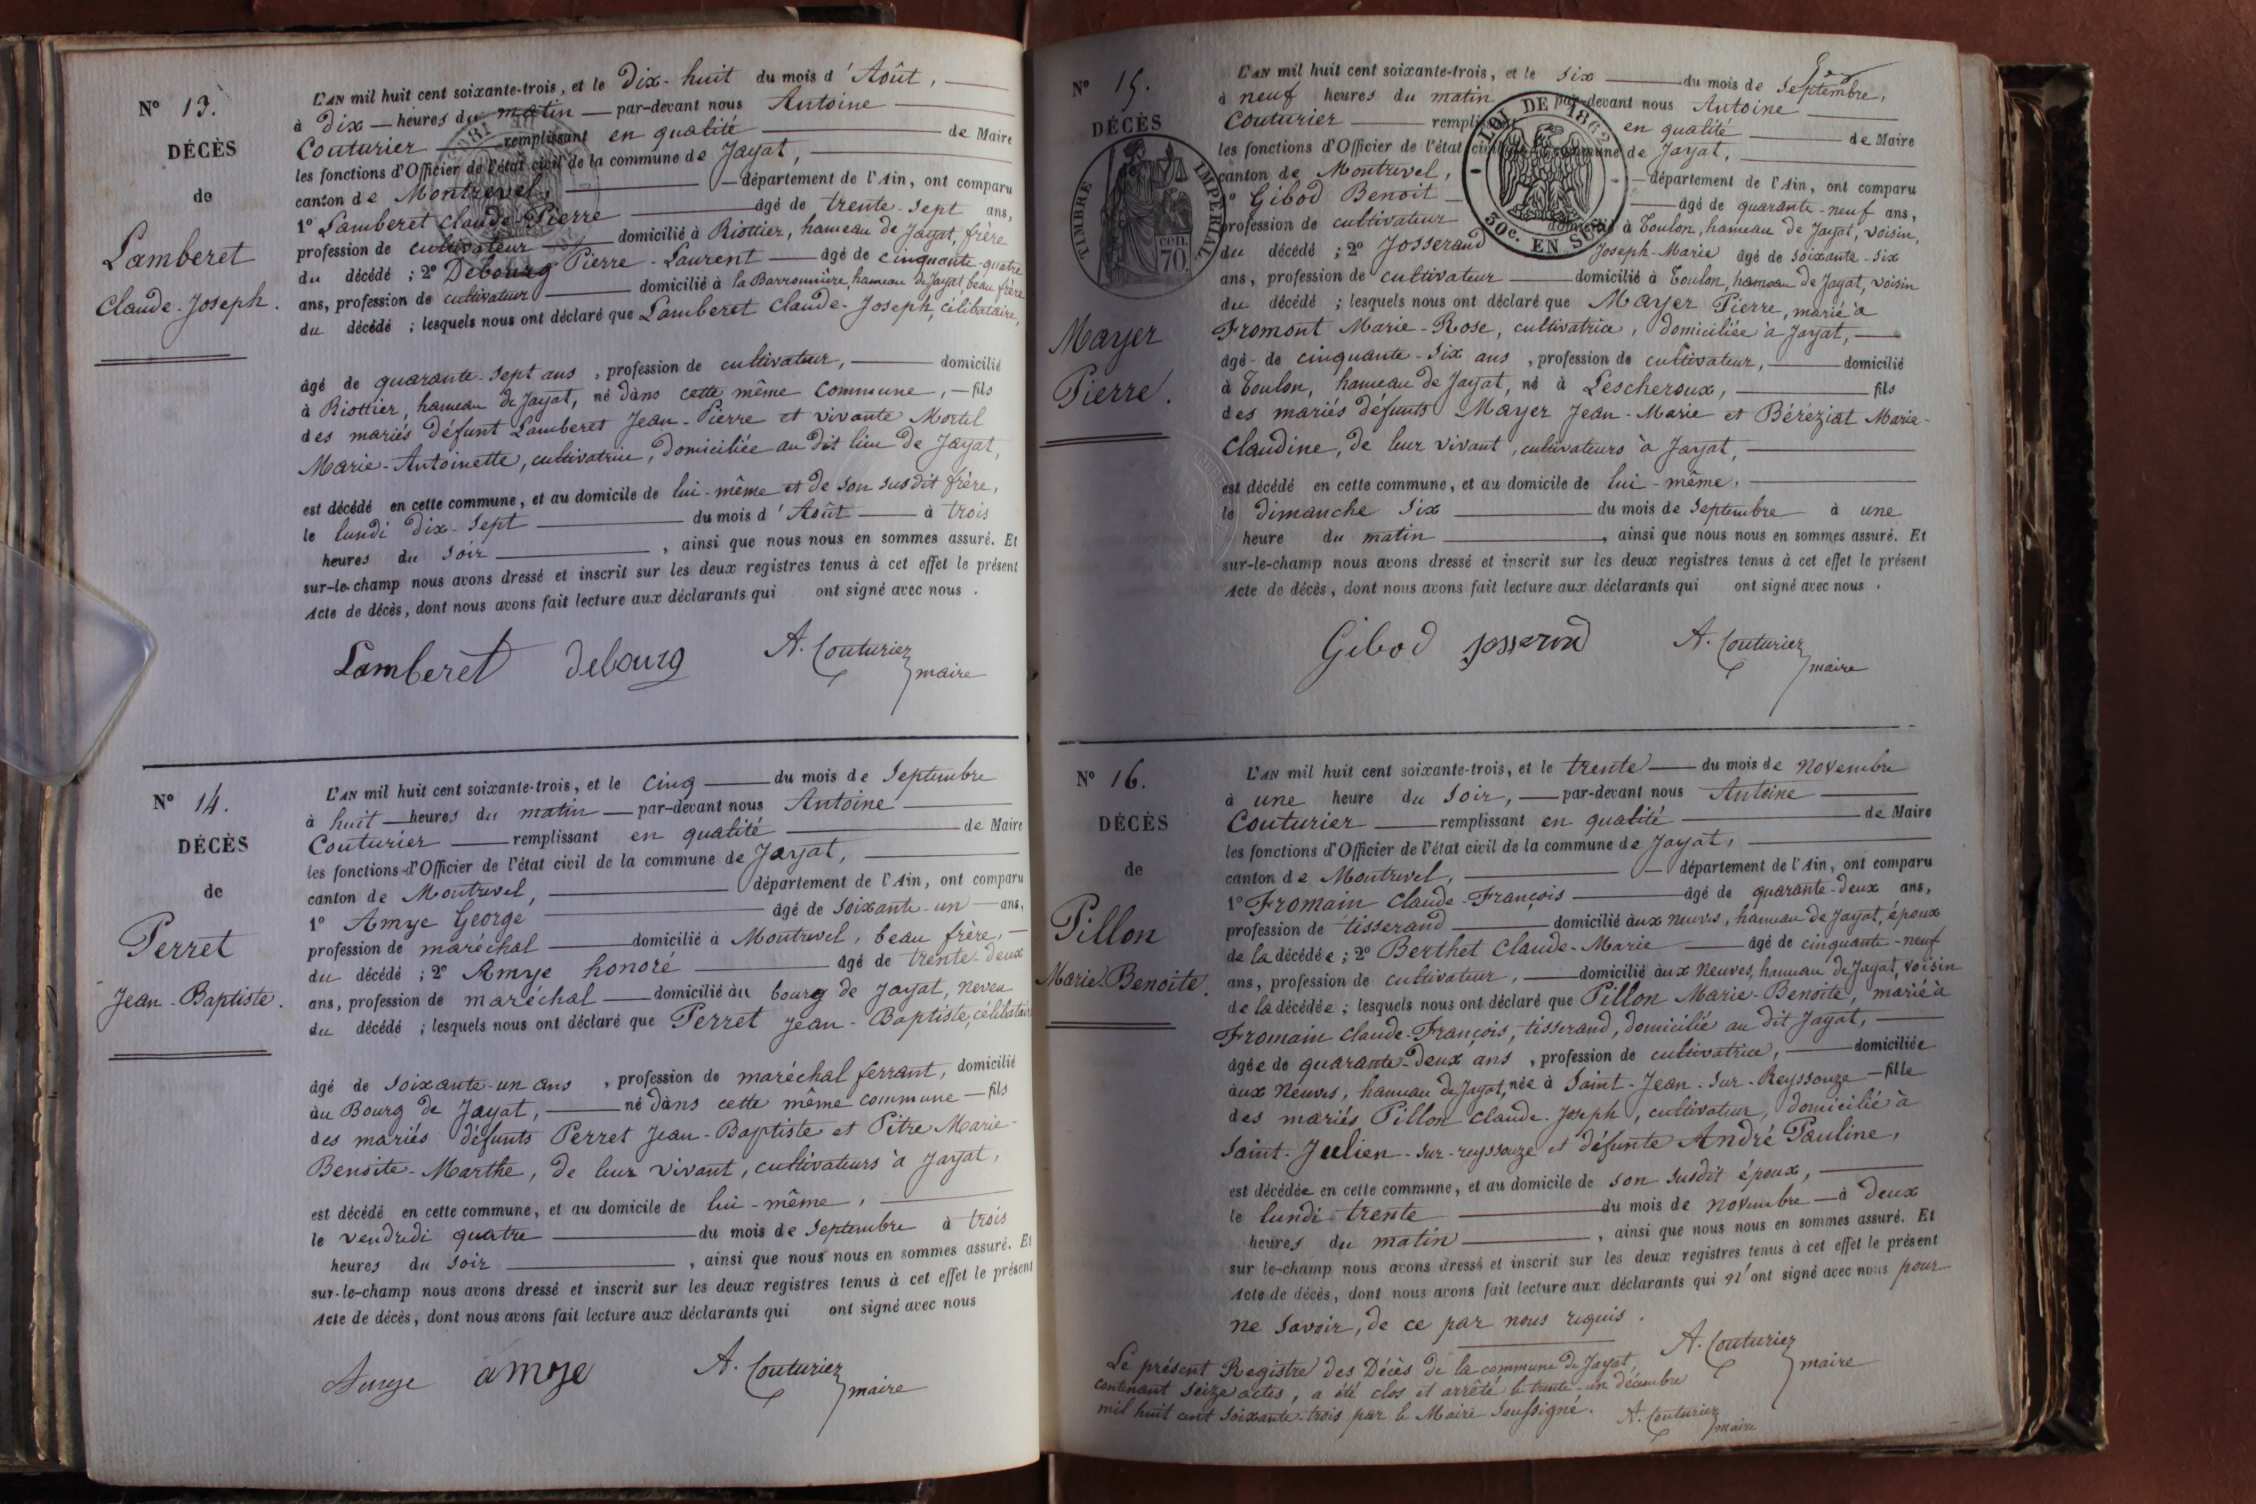 N° 13.
DÉCÈS
de
Lamberet
Claude-Joseph.
L'AN mil huit cent soixante-trois, et le dix-huit du mois d'Août,
à dix heures du matin par-devant nous Antoine
Couturier remplissant en qualité de Maire
les fonctions d'Officier de l'état civil de la commune de Jayat,
canton de Montrevel, département de l'Ain, ont comparu
1° Lamberet Claude-Pierre âgé de trente-sept ans,
profession de cultivateur domicilié à Riottier, hameau de Jayat, frère
du décédé ; 2° Debourg Pierre-Laurent âgé de cinquante-quatre
ans, profession de cultivateur domicilié à la Barronnière, hameau de Jayat, beau frère
du décédé ; lesquels nous ont déclaré que Lamberet Claude-Joseph, célibataire,
âgé de quarante-sept ans, profession de cultivateur, domicilié
à Riottier, hameau de Jayat, né dans cette même commune, fils
des mariés défunt Lamberet Jean-Pierre et vivante Mortel
Marie-Antoinette, cultivatrice, domiciliée au dit lieu de Jayat,
est décédé en cette commune, et au domicile de lui-même et de son susdit frère,
le lundi dix-sept du mois d'Août à trois
heures du soir, ainsi que nous nous en sommes assuré. Et
sur-le-champ nous avons dressé et inscrit sur les deux registres tenus à cet effet le présent
Acte de décès, dont nous avons fait lecture aux déclarants qui ont signé avec nous.
Lamberet debourg A. Couturier
maire
N° 14.
DÉCÈS
de
Perret
Jean-Baptiste.
L'AN mil huit cent soixante-trois, et le cinq du mois de Septembre
à huit heures du matin par-devant nous Antoine
Couturier remplissant en qualité de Maire
les fonctions d'Officier de l'état civil de la commune de Jayat,
canton de Montrevel, département de l'Ain, ont comparu
1° Amye George âgé de soixante-un ans,
profession de maréchal domicilié à Montrevel, beau frère,
du décédé ; 2° Amye honoré âgé de trente-deux
ans, profession de maréchal domicilié au bourg de Jayat, neveu
du décédé ; lesquels nous ont déclaré que Perret Jean-Baptiste, célibataire
âgé de soixante-un ans, profession de maréchal ferrant, domicilié
au Bourg de Jayat, né dans cette même commune fils
des mariés défunts Perret Jean-Baptiste et Pitre Marie-
Benoite-Marthe, de leur vivant, cultivateurs à Jayat,
est décédé en cette commune, et au domicile de lui-même,
le vendredi quatre du mois de Septembre à trois
heures du soir, ainsi que nous nous en sommes assuré. Et
sur-le-champ nous avons dressé et inscrit sur les deux registres tenus à cet effet le présent
Acte de décès, dont nous avons fait lecture aux déclarants qui ont signé avec nous
Amye amye A. Couturier
maire
N° 15.
DÉCÈS
TIMBRE IMPÉRIAL
cen. 70.
LOI DE 1862
30c. EN SUS
Mayer
Pierre.
L'AN mil huit cent soixante-trois, et le six du mois de Septembre,
à neuf heures du matin par-devant nous Antoine
Couturier remplissant en qualité de Maire
les fonctions d'Officier de l'état civil de la commune de Jayat,
canton de Montrevel, département de l'Ain, ont comparu
1° Gibod Benoit âgé de quarante-neuf ans,
profession de cultivateur domicilié à Toulon, hameau de Jayat, voisin,
du décédé ; 2° Josserand Joseph-Marie âgé de soixante-six
ans, profession de cultivateur domicilié à Toulon, hameau de Jayat, voisin
du décédé ; lesquels nous ont déclaré que Mayer Pierre, marié à
Fromont Marie-Rose, cultivatrice, domiciliée à Jayat,
âgé de cinquante-six ans, profession de cultivateur, domicilié
à Toulon, hameau de Jayat, né à Lescheroux, fils
des mariés défunts Mayer Jean-Marie et Béréziat Marie-
Claudine, de leur vivant, cultivateurs à Jayat,
est décédé en cette commune, et au domicile de lui-même,
le dimanche six du mois de Septembre à une
heure du matin, ainsi que nous nous en sommes assuré. Et
sur-le-champ nous avons dressé et inscrit sur les deux registres tenus à cet effet le présent
Acte de décès, dont nous avons fait lecture aux déclarants qui ont signé avec nous.
Gibod Josserand A. Couturier
maire
N° 16.
DÉCÈS
de
Pillon
Marie-Benoite.
L'AN mil huit cent soixante-trois, et le trente du mois de Novembre
à une heure du soir, par-devant nous Antoine
Couturier remplissant en qualité de Maire
les fonctions d'Officier de l'état civil de la commune de Jayat,
canton de Montrevel, département de l'Ain, ont comparu
1° Fromain Claude-François âgé de quarante-deux ans,
profession de tisserand domicilié aux Neuves, hameau de Jayat, époux
de la décédée ; 2° Berthet Claude-Marie âgé de cinquante-neuf
ans, profession de cultivateur, domicilié aux Neuves, hameau de Jayat, voisin
de la décédée ; lesquels nous ont déclaré que Pillon Marie-Benoite, marié à
Fromain Claude-François, tisserand, domicilié au dit Jayat,
âgée de quarante-deux ans, profession de cultivatrice, domiciliée
aux Neuves, hameau de Jayat, née à Saint-Jean-Sur-Reyssouze fille
des mariés Pillon Claude-Joseph, cultivateur, domicilié à
Saint-Julien-Sur-reyssouze et défunte André Pauline,
est décédée en cette commune, et au domicile de son susdit époux,
le lundi trente du mois de Novembre à deux
heures du matin, ainsi que nous nous en sommes assuré. Et
sur le-champ nous avons dressé et inscrit sur les deux registres tenus à cet effet le présent
Acte de décès, dont nous avons fait lecture aux déclarants qui n'ont signé avec nous pour
ne savoir, de ce par nous requis.
A. Couturier
maire
Le présent Registre des Décès de la commune de Jayat,
contenant seize actes, a été clos et arrêté le trente-un décembre
mil huit cent soixante-trois par le Maire soussigné. A. Couturier
maire